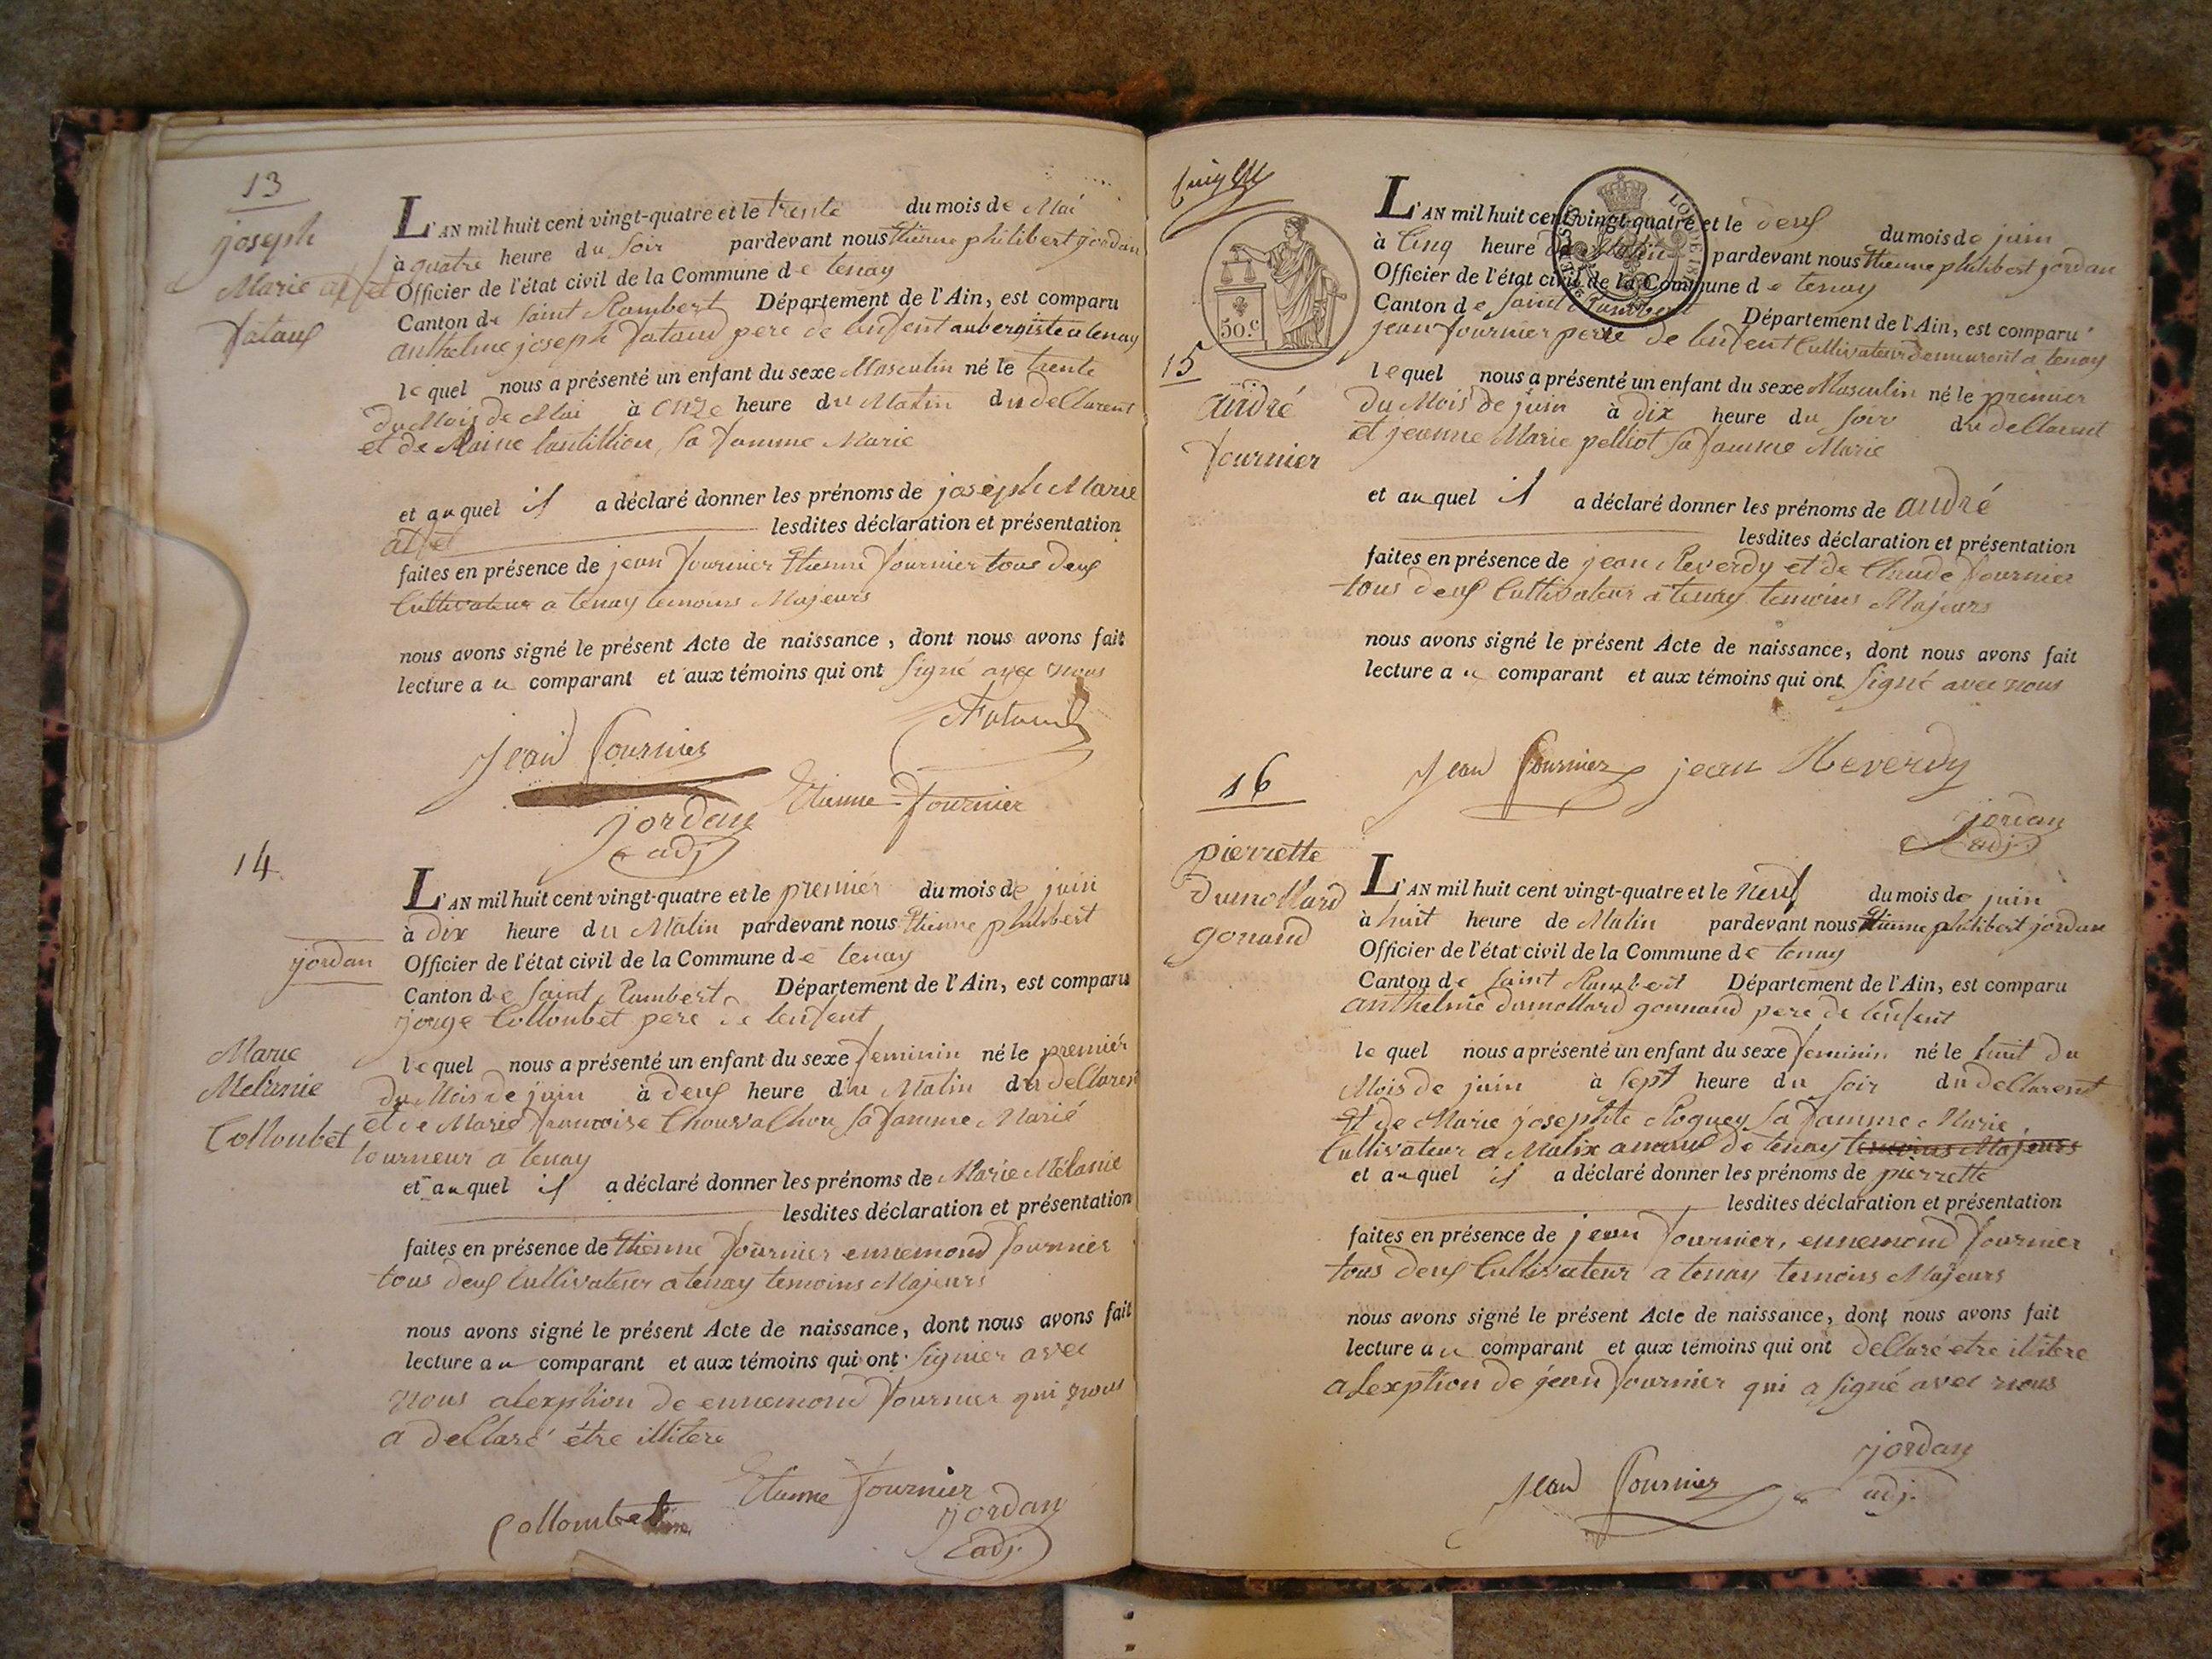 13
joseph
Marie
fataud
L'AN mil huit cent vingt-quatre et le trente du mois de Mai
à quatre heure du soir pardevant nous Etienne philibert jordan
Officier de l'état civil de la Commune de tenay
Canton de saint Rambert Département de l'Ain, est comparu
anthelme joseph fataud pere de lenfent aubergiste a tenay
lequel nous a présenté un enfant du sexe Masculin né le trente
du Mois de Mai à onze heure du Matin du decllarent
et de sa famme Marie
et auquel il a déclaré donner les prénoms de joseph Marie
lesdites déclaration et présentation
faites en présence de jean fournier Etienne fournier tous deux
Cultivateur a tenay temoins Majeurs
nous avons signé le présent Acte de naissance, dont nous avons fait
lecture au comparant et aux témoins qui ont signé avec nous
Fataud
Jean fournier
Etienne fournier
jordan
adj.
14
jordan
Marie
Melanie
Colloubet
L'AN mil huit cent vingt-quatre et le premier du mois de juin
à dix heure du Matin pardevant nous Etienne philibert
Officier de l'état civil de la Commune de tenay
Canton de saint Rambert Département de l'Ain, est comparu
Colloubet pere de lenfent
lequel nous a présenté un enfant du sexe feminin né le premier
du Mois de juin à deux heure du Matin du decllarent
et de Marie francoise sa famme Marié
tourneur a tenay
et auquel il a déclaré donner les prénoms de Marie Mélanie
lesdites déclaration et présentation
faites en présence de Etienne fournier ennemond fournier
tous deux Cultivateur a tenay temoins Majeurs
nous avons signé le présent Acte de naissance, dont nous avons fait
lecture au comparant et aux témoins qui ont signier avec
nous alexption de ennemond fournier qui nous
a decllaré être illitere
Etienne fournier
Collombet
jordan
adj.
50.c
15
andré
fournier
L'AN mil huit cent vingt-quatre et le deux du mois de juin
à Cinq heure du Matin pardevant nous Etienne philibert jordan
Officier de l'état civil de la Commune de tenay
Canton de saint Rambert Département de l'Ain, est comparu
jean fournier pere de lenfent Cultivateur demeurant a tenay
lequel nous a présenté un enfant du sexe Masculin né le premier
du Mois de juin à dix heure du soir du decllarent
et jeanne Marie pelliot sa famme Marie
et auquel il a déclaré donner les prénoms de andré
lesdites déclaration et présentation
faites en présence de jean Reverdy et de Claude fournier
tous deux Cultivateur a tenay temoins Majeurs
nous avons signé le présent Acte de naissance, dont nous avons fait
lecture au comparant et aux témoins qui ont signé avec nous
Jean fournier jean Reverdy
jordan
adj.
16
pierrette
Dumollard
gonand
L'AN mil huit cent vingt-quatre et le neuf du mois de juin
à huit heure de Matin pardevant nous Etienne philibert jordan
Officier de l'état civil de la Commune de tenay
Canton de saint Rambert Département de l'Ain, est comparu
anthelme dumollard gonnand pere de lenfent
lequel nous a présenté un enfant du sexe feminin né le huit du
Mois de juin à sept heure du soir du decllarent
et de Marie josephte Roguey sa famme Marie
Cultivateur a Malix de tenay temoins Majeurs
et auquel il a déclaré donner les prénoms de pierrette
lesdites déclaration et présentation
faites en présence de jean fournier, ennemond fournier
tous deux Cultivateur a tenay temoins Majeurs
nous avons signé le présent Acte de naissance, dont nous avons fait
lecture au comparant et aux témoins qui ont decllaré etre illitere
alexption de jean fournier qui a signé avec nous
Jean fournier
jordan
adj.